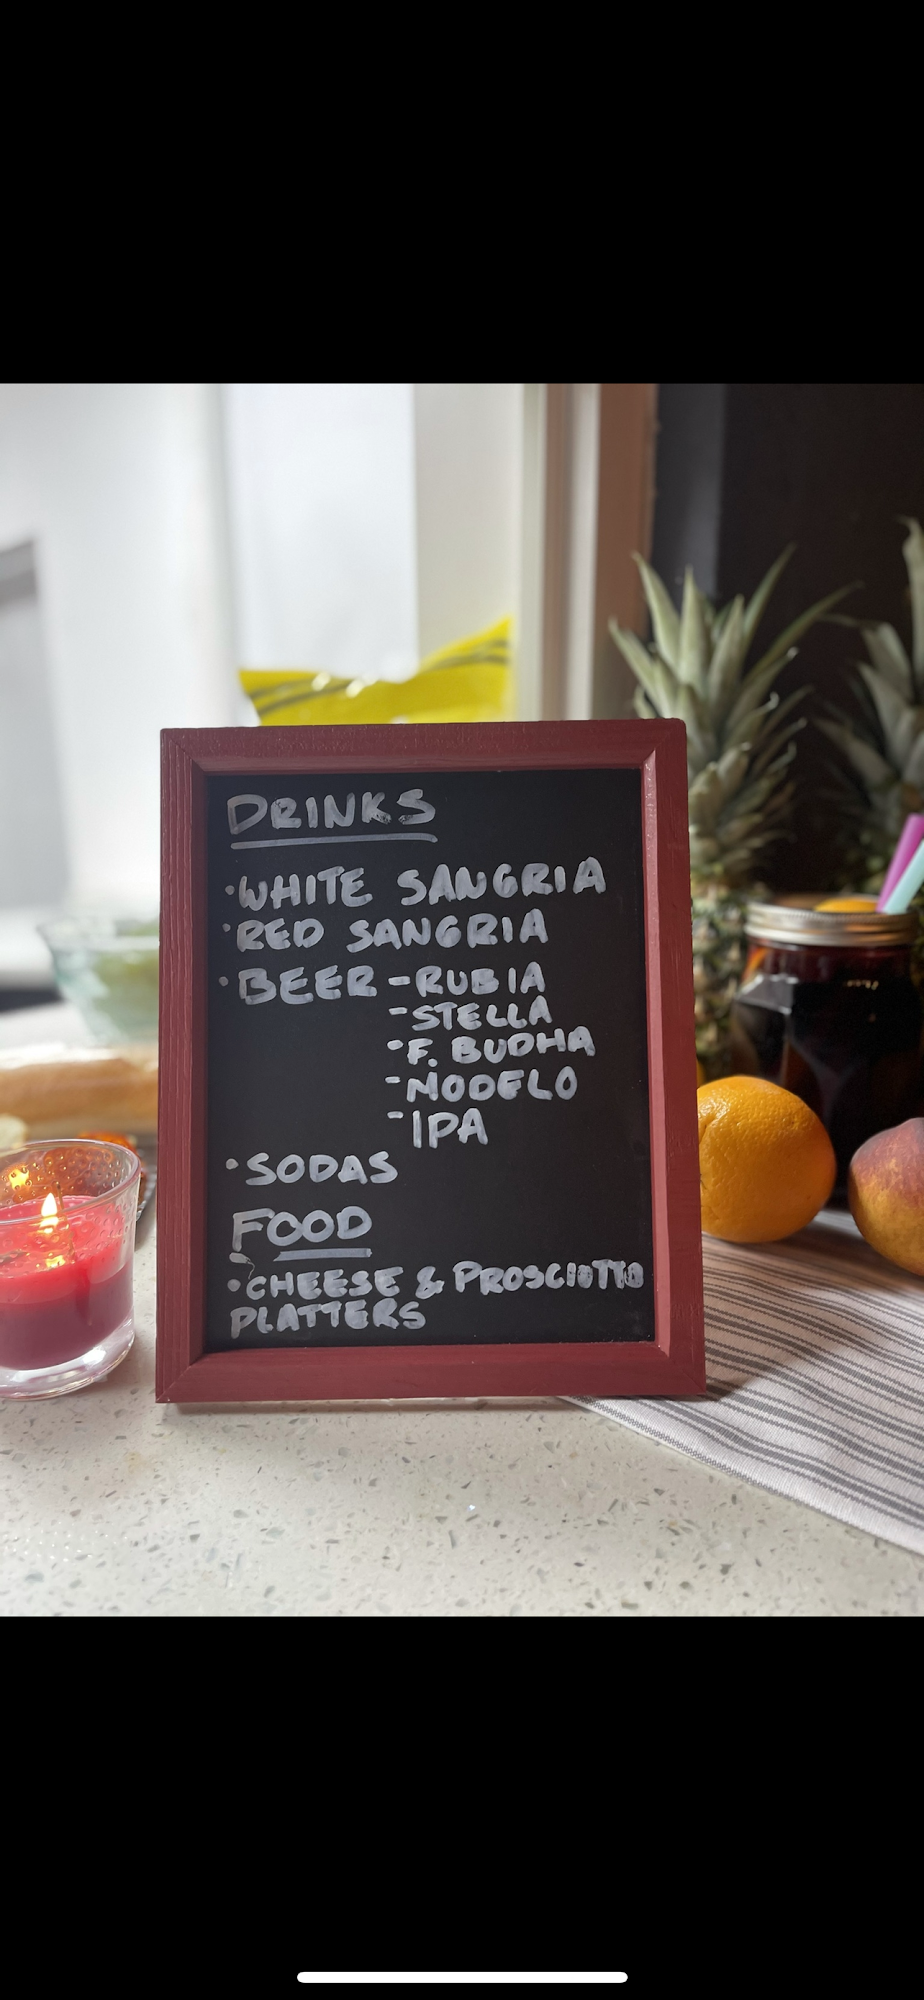 DRINKS
·WHITE SANGRIA
·RED SANGRIA
·BEER -RUBIA
-STELLA
-F. BUDHA
-MODELO
-IPA
·SODAS
FOOD
·CHEESE & PROSCIOTTO
PLATTERS